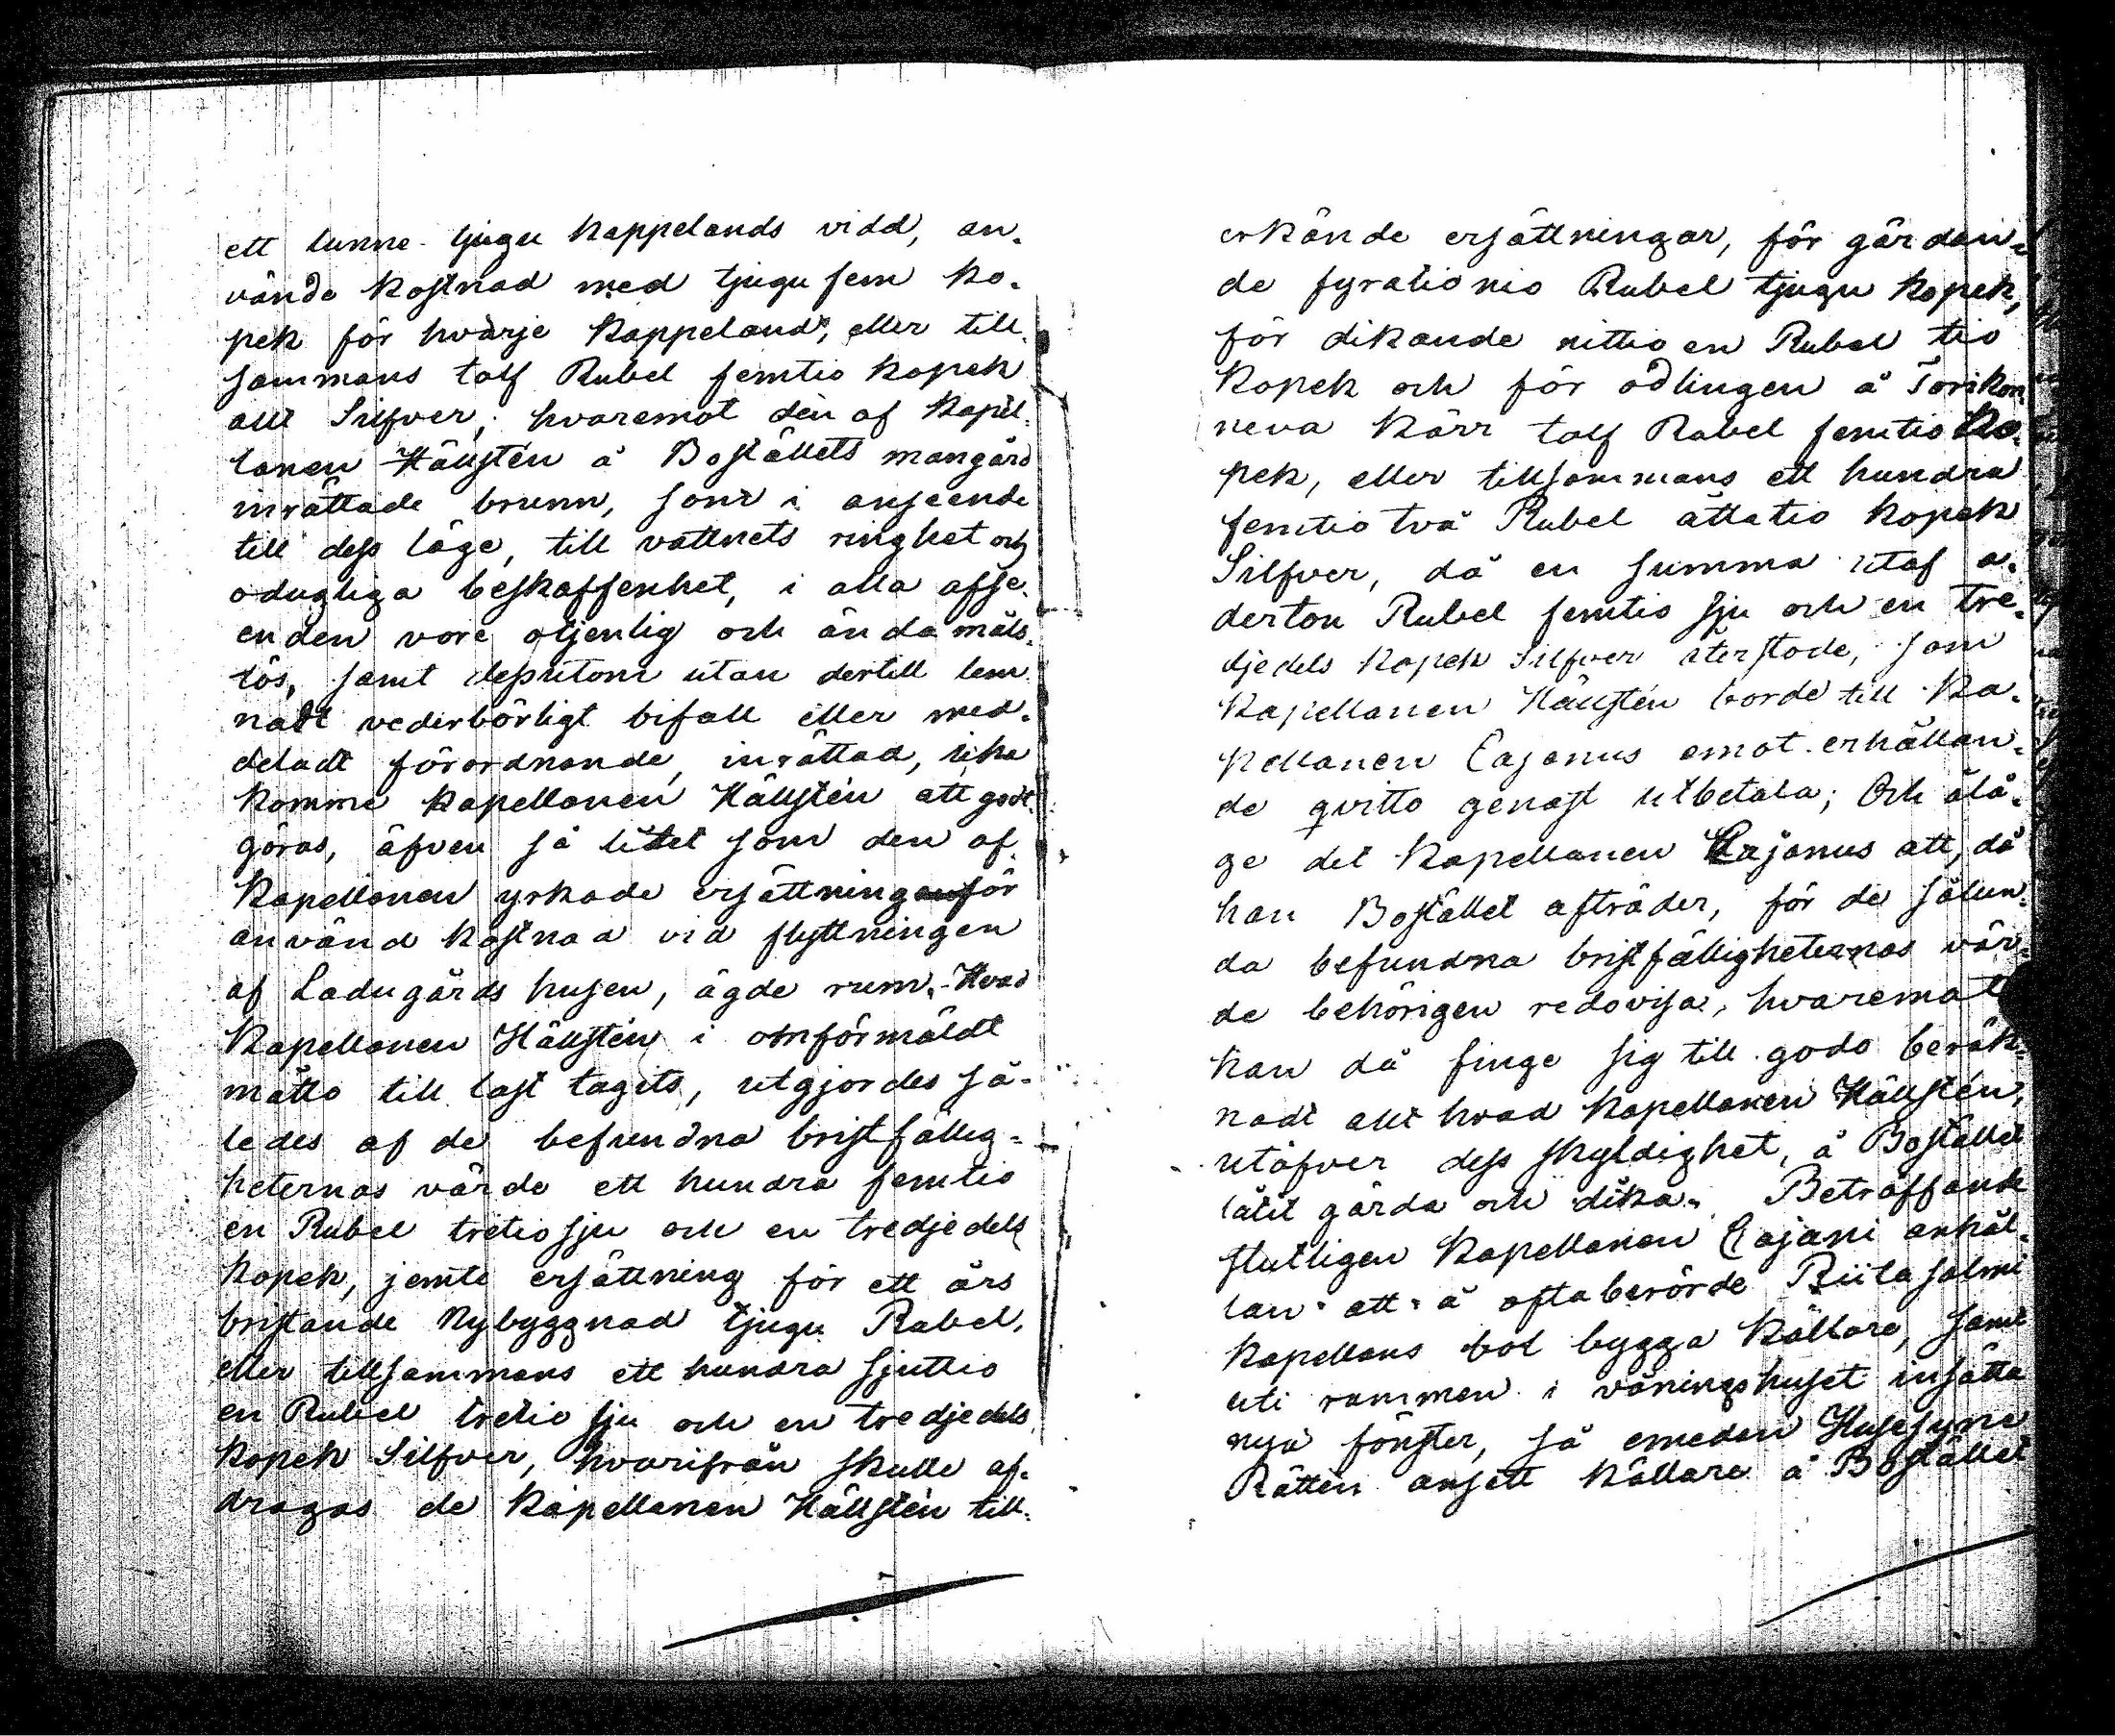 ett tunne tjugu kappelands vidd, an-
vände kostnad med tjugu fem ko-
pek för hvarje kappeland, eller till-
sammans tolf Rubel femtio kopek
allt Silfver; hvaremot den af kapel-
lanen Hällstén å Boställets mangård
inrättade brunn, som i anseende
till dess läge, till vattnets ringhet och
odugliga beskaffenhet, i alla afse-
enden vore otjenlig och ändamåls-
lös, samt dessutom utan dertill lem-
nadt vederbörligt bifall eller med-
deladt förordnande, inrättad, icke
komme kapellanen Hällstén att godt-
göras, äfven så litet som den af
Kapellanen yrkade ersättning för
använd kostnad vid flyttningen
af Ladugårds husen, ägde rum. Hvad
Kapellanen Hällstén i omförmäldt
måtto till last tagits, utgjordes så-
ledes af de befundna bristfällig-
heternas värde ett hundra femtio
en Rubel tretiosju och en tredjedels
kopek, jemte ersättning för ett års
bristande Nybyggnad tjugu Rubel,
eller tillsammans ett hundra sjuttio
en Rubel tretio sju och en tredjedels
kopek Silfver, hvarifrån skulle af-
dragas de kapellanen Hällstén till-
erkände ersättningar, för gärdan-
de fyrationio Rubel tjugu kopek,
för dikande nittio en Rubel tio
kopek och för odlingen å Torikon-
neva kärr tolf Rubel femtio ko-
pek, eller tillsammans ett hundra
femtio två Rubel åttatio kopek
Silfver, då en summa utaf a-
derton Rubel femtio sju och en tre-
djedels kopek Silfver återstode, som
Kapellanen Hällstén borde till Ka-
pellanen Cajanus emot erhållan-
de qvitto genast utbetala; Och ålå-
ge det Kapellanen Cajanus att, då
han Bostället afträder, för de sålun-
da befundna bristfälligheternas vär-
de behörigen redovisa, hvaremot
han då finge sig till godo beräk-
nadt allt hvad kapellanen Hällstén,
utöfver dess skyldighet, å Bostället
låtit gärda och dika. Beträffande
slutligen Kapellanen Cajani anhål-
lan att å oftaberörde Piilasalmi
Kapellans bol bygga källare, samt
uti rummen i våningshuset insätta
nya fönster, så emedan Husesyns
Rätten ansett källare å Bostället